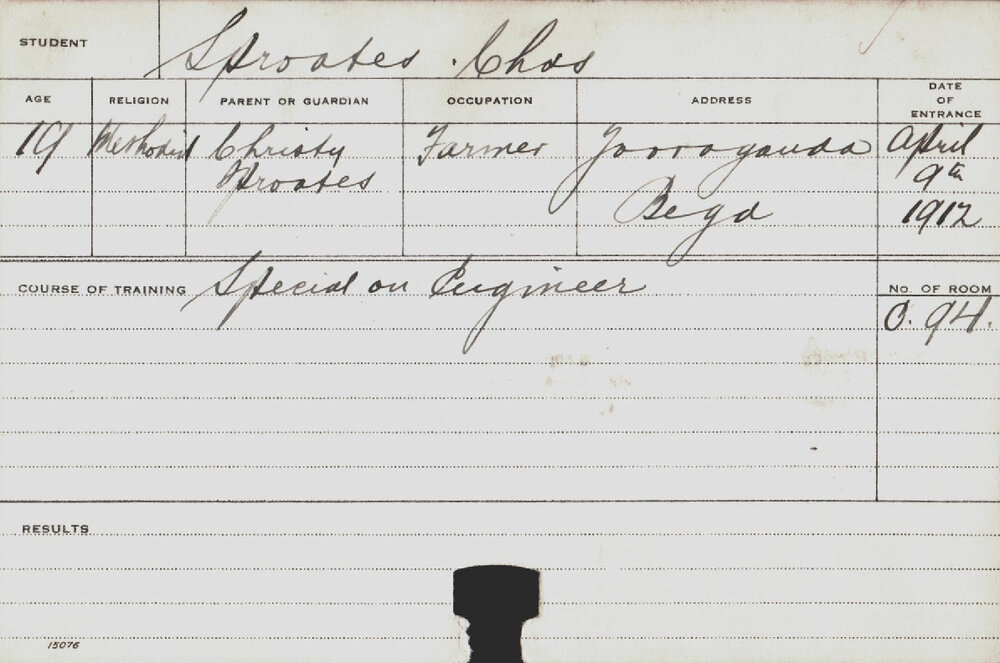 STUDENT Sproates. Chas
AGE RELIGION PARENT OR GUARDIAN OCCUPATION ADDRESS DATE OF ENTRANCE
19 Methodist Christy Farmer April
Sproates 9th
Bega 1912
COURSE OF TRAINING Special on Engineer No. OF ROOM
O. 94.
RESULTS
15076